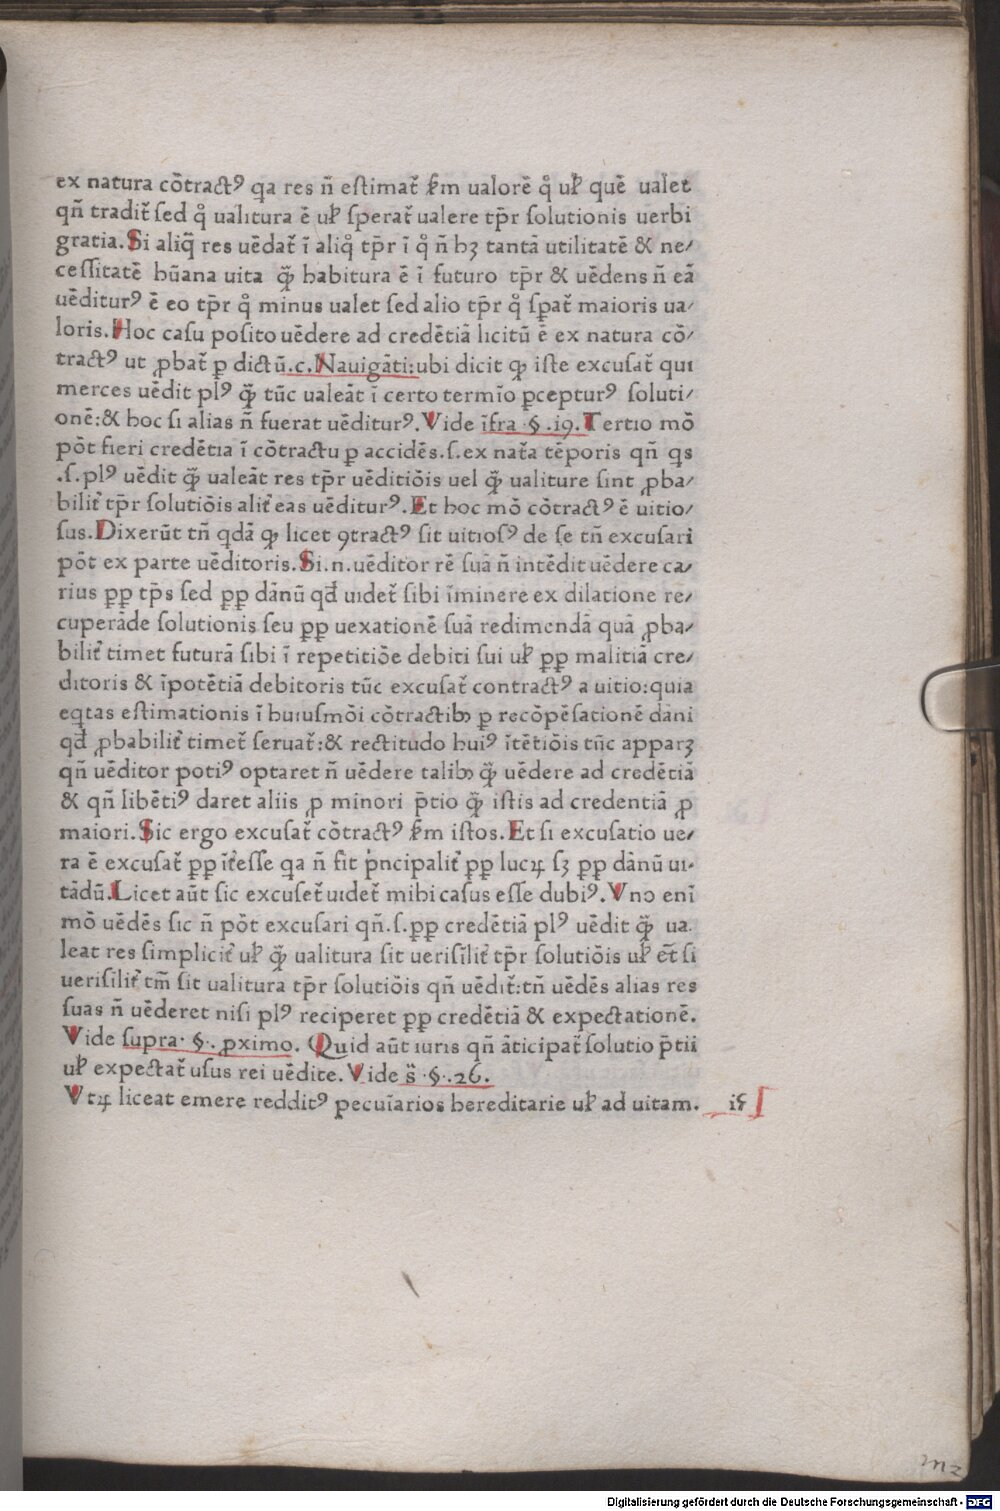 ex natura cōtractꝰ qa res n̄ estimat᷑ ẜm ualorē qͦ uꝉ quē ualet
qn̄ tradit᷑ sed qͦ ualitura ē uꝉ sperat᷑ ualere tp̄r solutionis uerbi
gratia. Si aliq̄ res uēdat᷑ ī aliqͦ tp̄r ī qͦ n̄ hꝫ tantā utilitatē & ne/
cessitatē hūana uita ꝙ̄ habitura ē ī futuro tp̄r & uēdens n̄ eā
uēditurꝰ ē eo tp̄r qͦ minus ualet sed alio tp̄r qͦ sꝑat᷑ maioris ua/
loris. Hoc casu posito uēdere ad credētiā licitū ē ex natura cō/
tractꝰ ut ꝓbat᷑ ꝑ dictū.c. Nauigāti: ubi dicit ꝙ iste excusat᷑ qui
merces uēdit plꝰ ꝙ̄ tūc ualeāt ī certo termīo ꝑcepturꝰ soluti/
onē: & hoc si alias n̄ fuerat uēditurꝰ. Vide īfra .§.19. Tertio mō
pōt fieri credētia ī cōtractu ꝑ accidēs.s. ex nat᷑a tēporis qn̄ qs
.s. plꝰ uēdit ꝙ̄ ualeāt res tp̄r uēditiōis uel ꝙ̄ ualiture sint ꝓba/
bilit᷑ tp̄r solutiōis alit᷑ eas uēditurꝰ. Et hoc mō cōtractꝰ ē uitio/
sus. Dixerūt tn̄ qdā ꝙ licet ꝯtractꝰ sit uitiosꝰ de se tn̄ excusari
pōt ex parte uēditoris. Si.n. uēditor rē suā n̄ intēdit uēdere ca/
rius ꝑꝑ tp̄s sed ꝑꝑ dānū qd̄ uidet᷑ sibi īminere ex dilatione re/
cuperāde solutionis seu ꝑꝑ uexationē suā redimendā quā ꝓba/
bilit᷑ timet futurā sibi ī repetitiōe debiti sui uꝉ ꝑꝑ malitiā cre/
ditoris & īpotētiā debitoris tūc excusat᷑ contractꝰ a uitio: quia
eqtas estimationis ī huiusmōi cōtractibꝫ ꝑ recōpēsationē dāni
qd̄ ꝓbabilit᷑ timet᷑ seruat᷑: & rectitudo huiꝰ ītētiōis tūc apparꝫ
qn̄ uēditor potiꝰ optaret n̄ uēdere talibꝫ ꝙ̄ uēdere ad credētiā
& qn̄ libētiꝰ daret aliis ꝓ minori p̄tio ꝙ̄ istis ad credentiā ꝓ
maiori. Sic ergo excusat᷑ cōtractꝰ ẜm istos. Et si excusatio ue/
ra ē excusat᷑ ꝑꝑ īt᷑esse qa n̄ fit p̍ncipalit᷑ ꝑꝑ lucꝝ sꝫ ꝑꝑ dānū ui-
tādū. Licet aūt sic excuset᷑ uidet᷑ mihi casus esse dubiꝰ. Vno enī
mō uēdēs sic n̄ pōt excusari qn̄.s. ꝑꝑ credētiā plꝰ uēdit ꝙ̄ ua.
leat res simplicit᷑ uꝉ ꝙ̄ ualitura sit uerisīlit᷑ tp̄r solutiōis uꝉ et̄ si
uerisilit᷑ tm̄ sit ualitura tp̄r solutiōis qn̄ uēdit᷑: tn̄ uēdēs alias res
suas n̄ uēderet nisi plꝰ reciperet ꝑꝑ credētiā & expectationē.
Vide supra. §. ꝓximo. Quid aūt iuris qn̄ āticipat᷑ solutio p̄tii
uꝉ expectat᷑ usus rei uēdite. Vide s̄ .§.26.
Vtꝝ liceat emere redditꝰ pecuīarios hereditarie uꝉ ad uitam.
m2
Digitalisierung gefördert durch die Deutsche Forschungsgemeinschaft - DFG